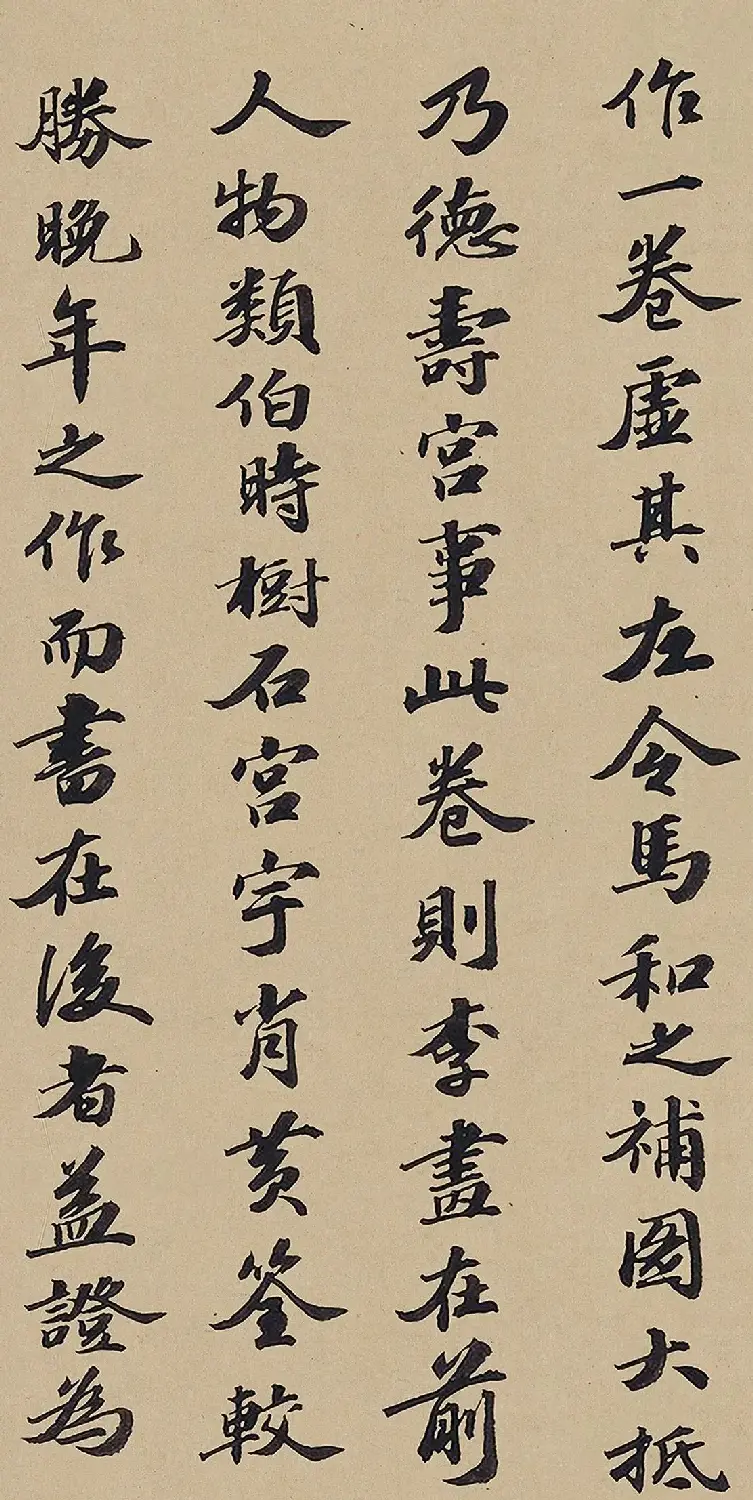 作一卷虛其左令馬和之補图大抵
乃德壽宮事此卷則李畫在前
人物類伯時樹石宮宇肖黄筌較
勝晚年之作而書在後者益證為